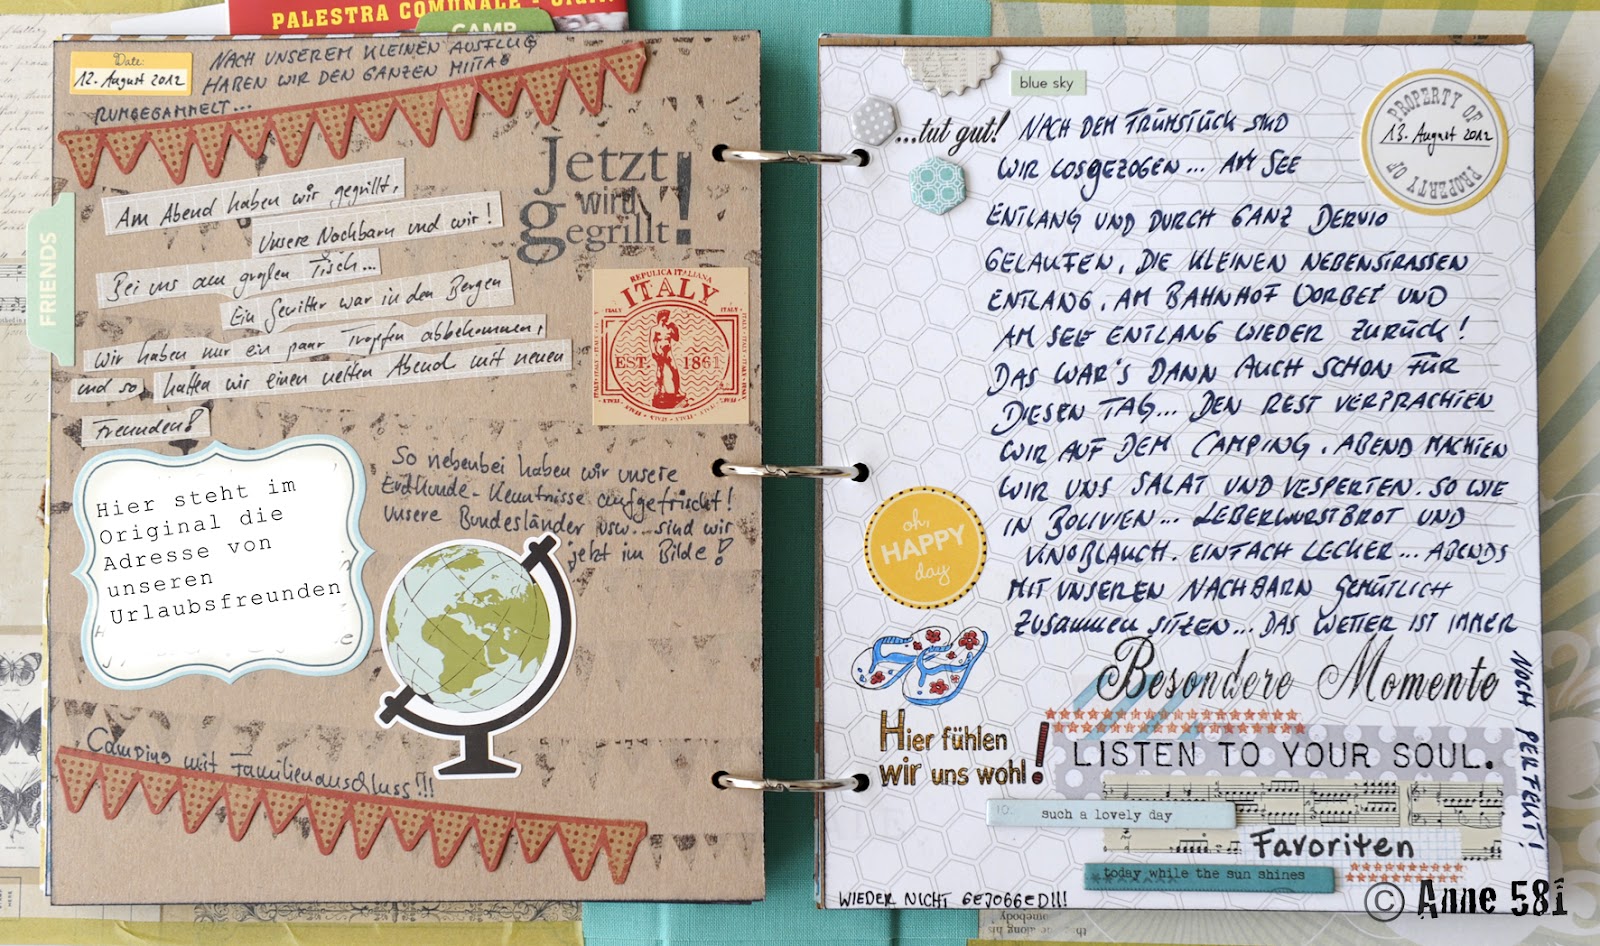 PALESTRA COMUNALE
CAMP
Date:
12. August 2012
NACH UNSEREM KLEINEN AUSFLUG
HABEN WIR DEN GANZEN MITTAG
RUMGEGAMMELT...
Jetzt
wird
gegrillt!
Am Abend haben wir gegrillt,
Unsere Nachbarn und wir!
Bei uns am großen Tisch...
Ein Gewitter war in den Bergen
wir haben nur ein paar Tropfen abbekommen,
und so hatten wir einen netten Abend mit neuen
Freunden!
FRIENDS
REPUBLICA ITALIANA
ITALY
EST. 1861
So nebenbei haben wir unsere
Erdkunde-Kenntnisse aufgefrischt!
Unsere Bundesländer usw... sind wir
jetzt im Bilde!
Hier steht im
Original die
Adresse von
unseren
Urlaubsfreunden
Camping mit Familienanschluss!!!
blue sky
...tut gut!
PROPERTY OF
13. August 2012
PROPERTY OF
NACH DEM FRÜHSTÜCK SIND
WIR LOSGEZOGEN... AM SEE
ENTLANG UND DURCH GANZ DERVIO
GELAUFEN, DIE KLEINEN NEBENSTRASSEN
ENTLANG, AM BAHNHOF VORBEI UND
AM SEE ENTLANG WIEDER ZURÜCK!
DAS WAR'S DANN AUCH SCHON FÜR
DIESEN TAG... DEN REST VERPRACHTEN
WIR AUF DEM CAMPING, ABEND MACHTEN
WIR UNS SALAT UND VESPERTEN. SO WIE
IN BOLIVIEN... LEBERWURSTBROT UND
VINOBLAUCH. EINFACH LECKER... ABENDS
MIT UNSEREN NACHBARN GEMÜTLICH
ZUSAMMEN SITZEN... DAS WETTER IST IMMER
NOCH PERFEKT!
oh,
HAPPY
day
Besondere Momente
Hier fühlen
wir uns wohl!
LISTEN TO YOUR SOUL.
10.
such a lovely day
Favoriten
today while the sun shines
WIEDER NICHT GEJOGGED!!!
© Anne 581